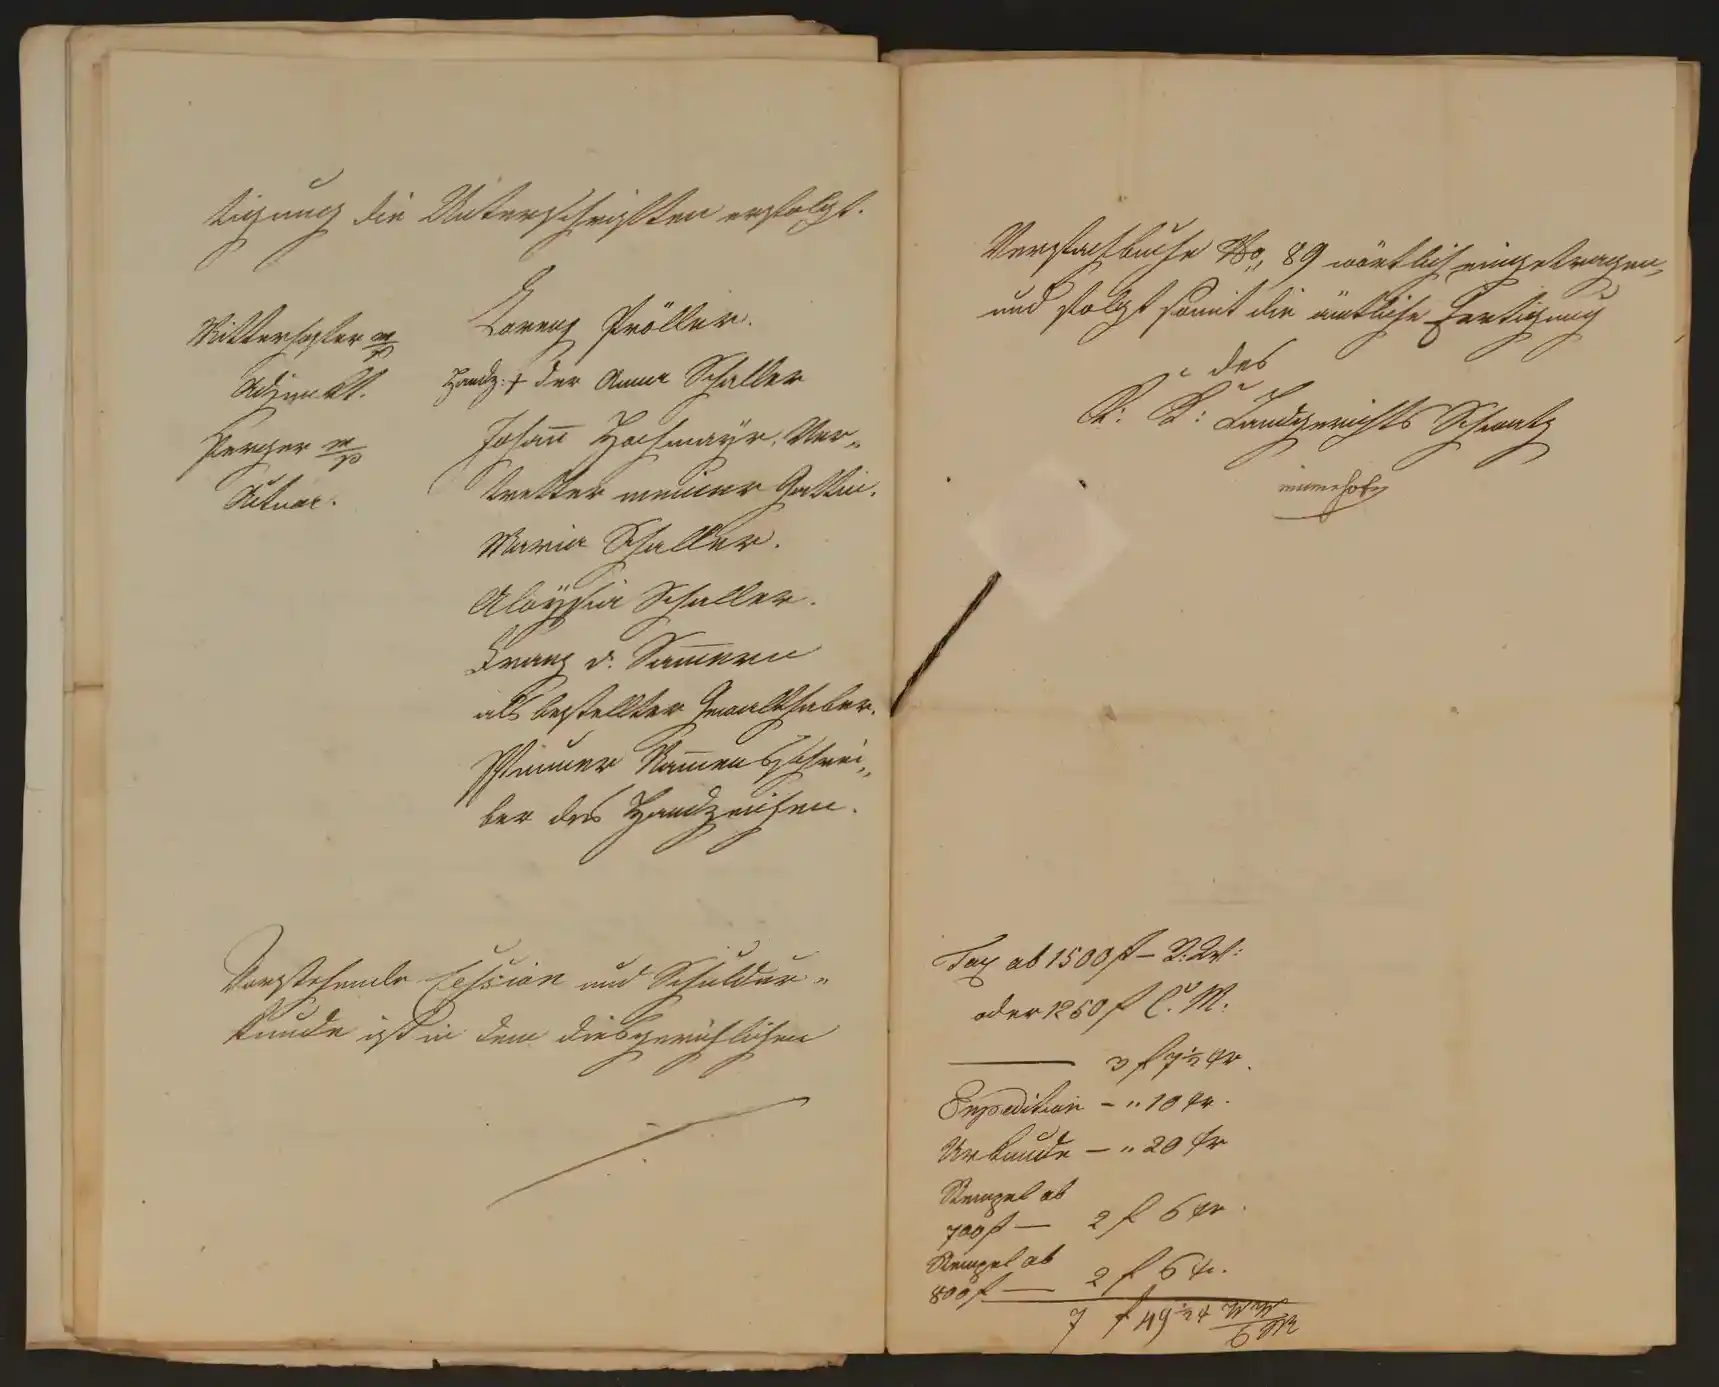 tigung die Unterschriften erfolgt.
Mitterhofer m/p
Adjunkt.
Perger m/p
Actuar.
Lorenz Pröller.
Handz: + der Anna Schaller
Johan̅ Hochmayr, Ver„
tretter meiner Gattin.
Maria Schaller.
Aloÿsia Schaller.
Franz v. Sam̅ern
als bestellter Gewalthaber.
Nam̅ensschrei„
ber des Handzeichen.
Vorstehende Cession und Schuldur„
kunde ist in dem diesgerichtlichen
Verfachbuche No„ 89 wörtlich eingetragen,
und folgt somit die ämtliche Fertigung
des
K: K: Landgerichts Schwatz
Tax ab 1500 f – R: W:
oder 1250 f C. M.
— 3 f 7 ½ kr.
Expedition – „ 10 kr.
Urkunde – „ 20 kr
Stempel ab
700 f — 2 f 6 kr.
Stempel ab
800 f — 2 f 6 kr.
7 f 49 ½ kr